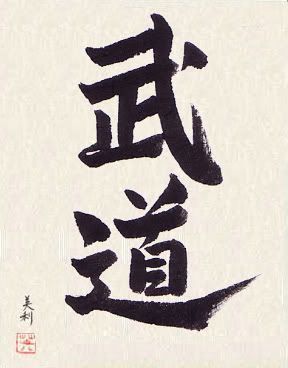 武道
美利